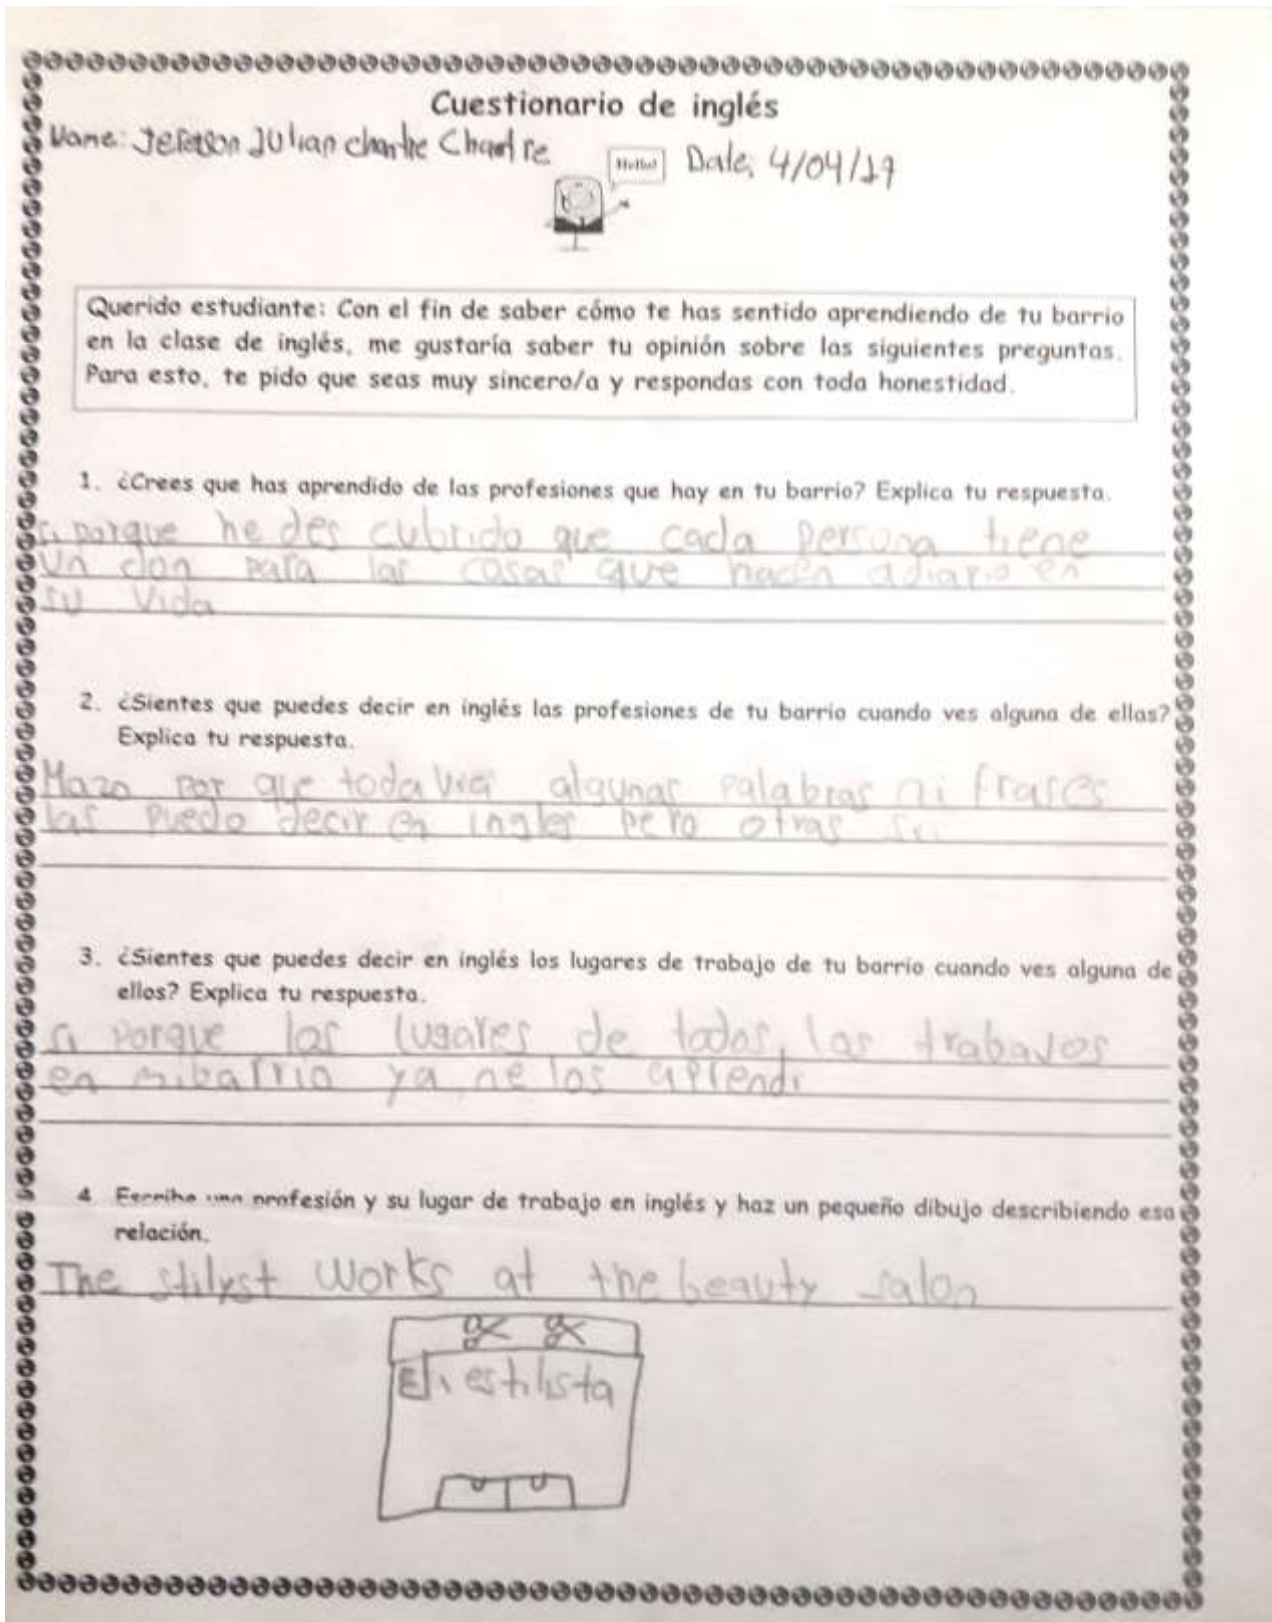 Cuestionario de inglés
Name: Jeferson Julian Chantre
Hello!
Date: 4/04/19
Querido estudiante: Con el fin de saber cómo te has sentido aprendiendo de tu barrio
en la clase de inglés, me gustaría saber tu opinión sobre las siguientes preguntas.
Para esto, te pido que seas muy sincero/a y respondas con toda honestidad.
1. ¿Crees que has aprendido de las profesiones que hay en tu barrio? Explica tu respuesta.
porque he des cubrido que cada persona tiene
un don para las cosas que hacen adiario en
su vida
2. ¿Sientes que puedes decir en inglés las profesiones de tu barrio cuando ves alguna de ellas?
Explica tu respuesta.
por que toda via algunas palabras ni frases
las puedo decir en ingles pero otras si
3. ¿Sientes que puedes decir en inglés los lugares de trabajo de tu barrio cuando ves alguna de
ellos? Explica tu respuesta.
porque los lugares de todos los trabajos
en mibarrio ya me los aprendi
4. Escribe una profesión y su lugar de trabajo en inglés y haz un pequeño dibujo describiendo esa
relación.
The stilyst works at the beauty salon
estilista